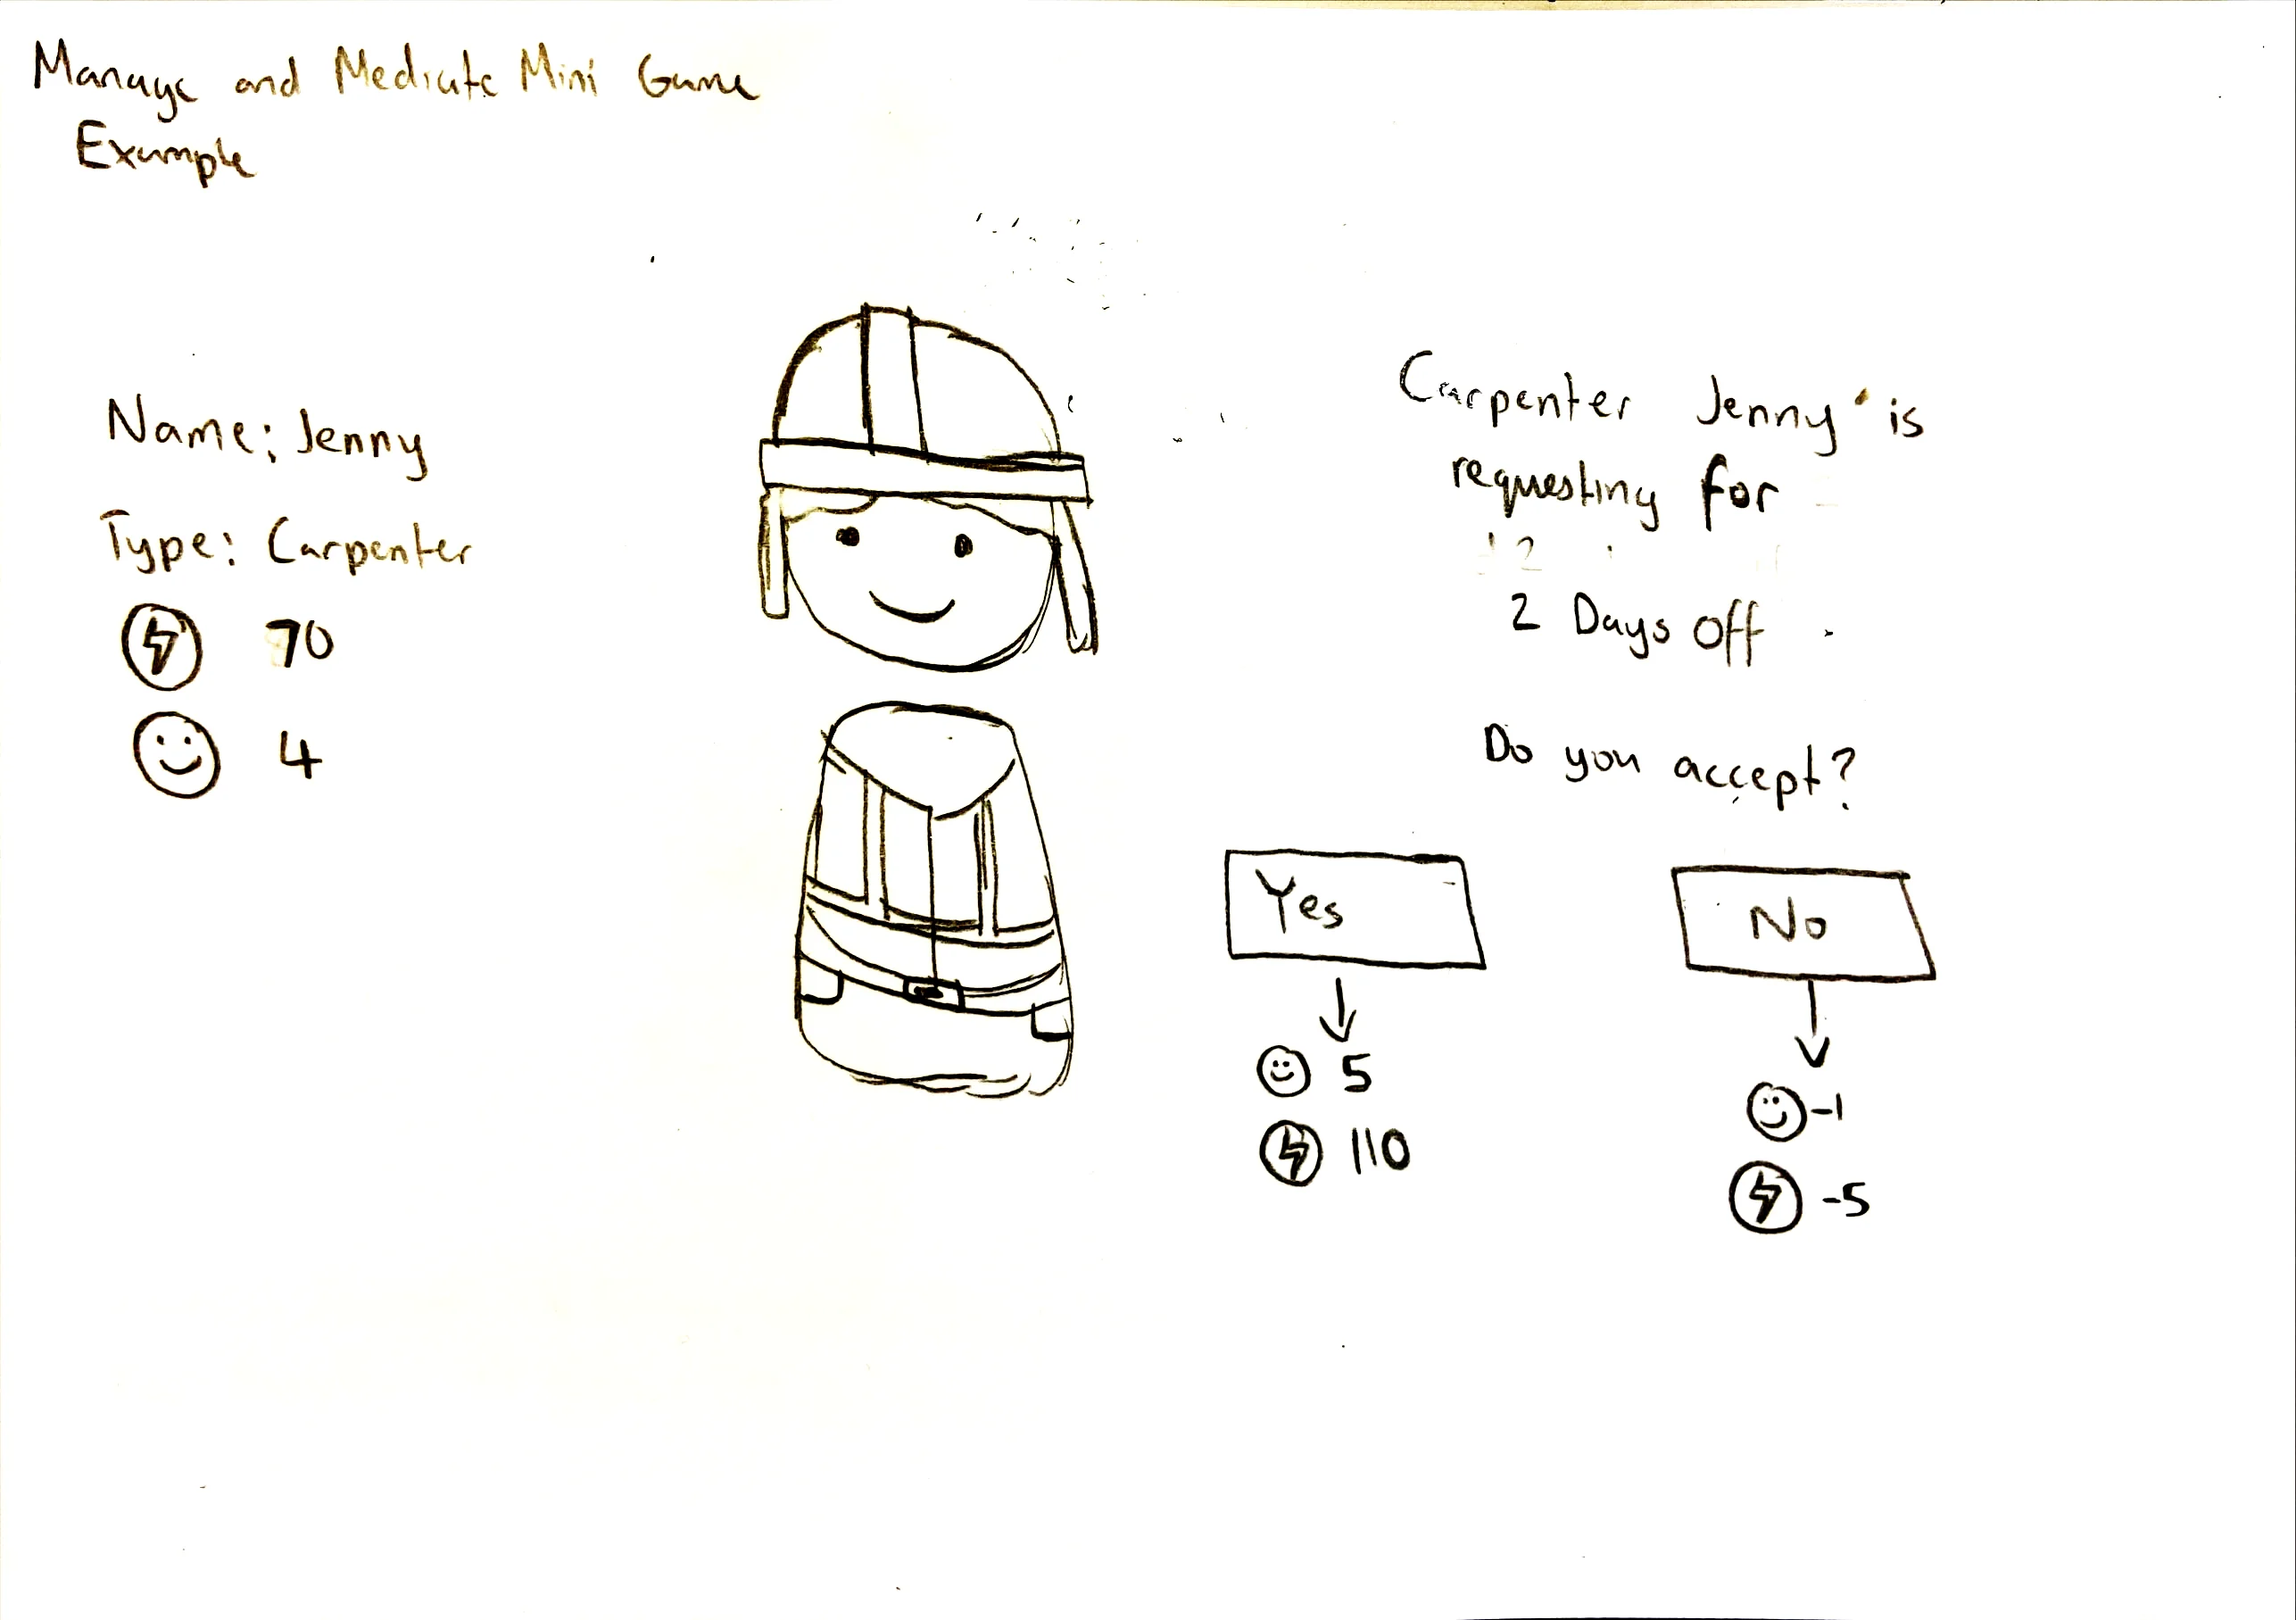 Manage and Mediate Mini Game
Example
Name: Jenny
Type: Carpenter
70
4
Carpenter Jenny is
requesting for
2 Days Off
Do you accept?
Yes
No
5
110
-1
-5